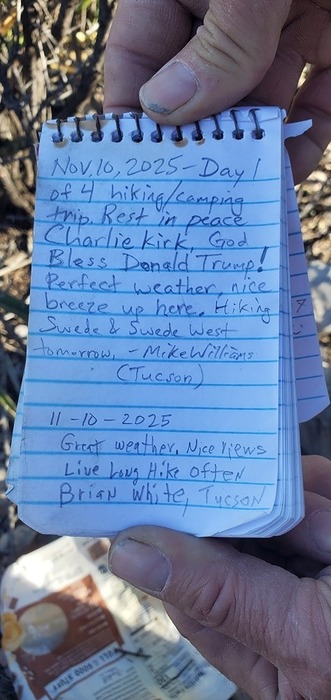 Nov. 10, 2025 - Day 1
of 4 hiking/camping
trip. Rest in peace
Charlie Kirk, God
Bless Donald Trump!
Perfect weather, nice
breeze up here. Hiking
Swede & Swede West
tomorrow, - Mike Williams
(Tucson)
11-10-2025
Great weather, Nice Views
Live Long Hike Often
Brian White, Tucson